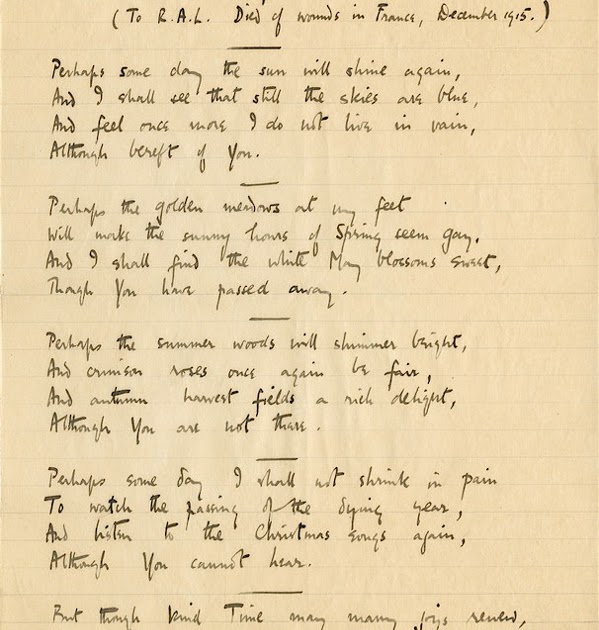 (To R.A.L. Died of wounds in France, December 1915.)
Perhaps some day the sun will shine again,
And I shall see that still the skies are blue,
And feel once more I do not live in vain,
Although bereft of You.
Perhaps the golden meadows at my feet
Will make the sunny hours of Spring seem gay,
And I shall find the white May blossoms sweet,
Though You have passed away.
Perhaps the summer woods will shimmer bright,
And crimson roses once again be fair,
And autumn harvest fields a rich delight,
Although You are not there.
Perhaps some day I shall not shrink in pain
To watch the passing of the dying year,
And listen to the Christmas songs again,
Although You cannot hear.
But though kind Time may many joys renew,